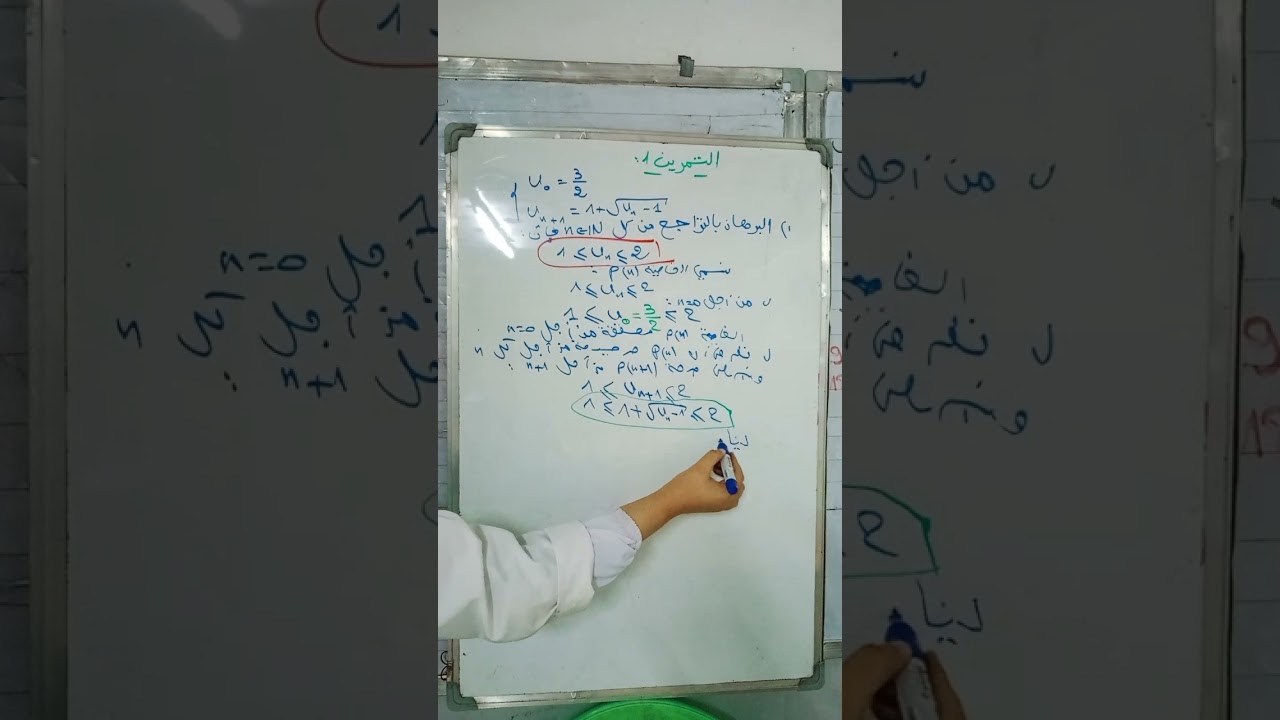 التمرين 1:
U₀ = 3/2
Uₙ₊₁ = 1+√(Uₙ-1)
1) البرهان بالتراجع من كل n∈ℕ فان:
1 ≤ Uₙ ≤ 2
نسمي الخاصية P(n):
1 ≤ Uₙ ≤ 2
من اجل n=0:
1 ≤ U₀ = 3/2 ≤ 2
الخاصية P(n) محققة من أجل n=0
P(n) من أجل n
P(n+1) من أجل n+1:
1 ≤ Uₙ₊₁ ≤ 2
1 ≤ 1+√(Uₙ-1) ≤ 2
لدينا